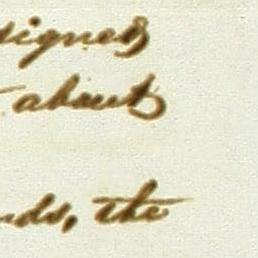 signed
about
nds, the